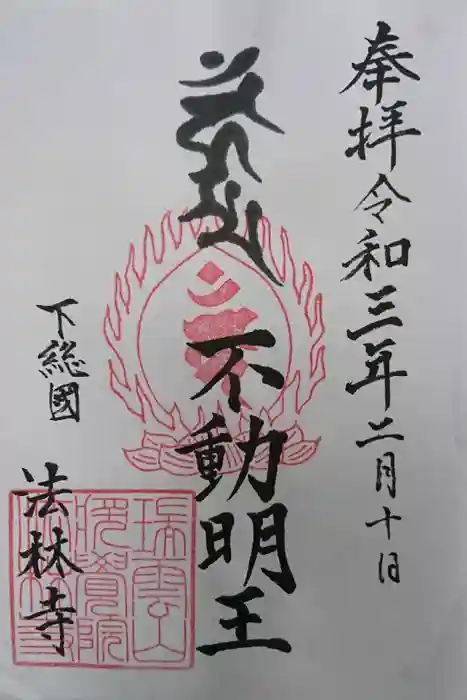 奉拝令和三年二月十日
不動明王
下総國
法林寺
瑞雲山